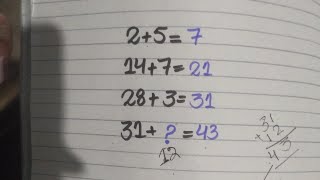 2+5=7
14+7=21
28+3=31
31+?=43
12
31
12
43